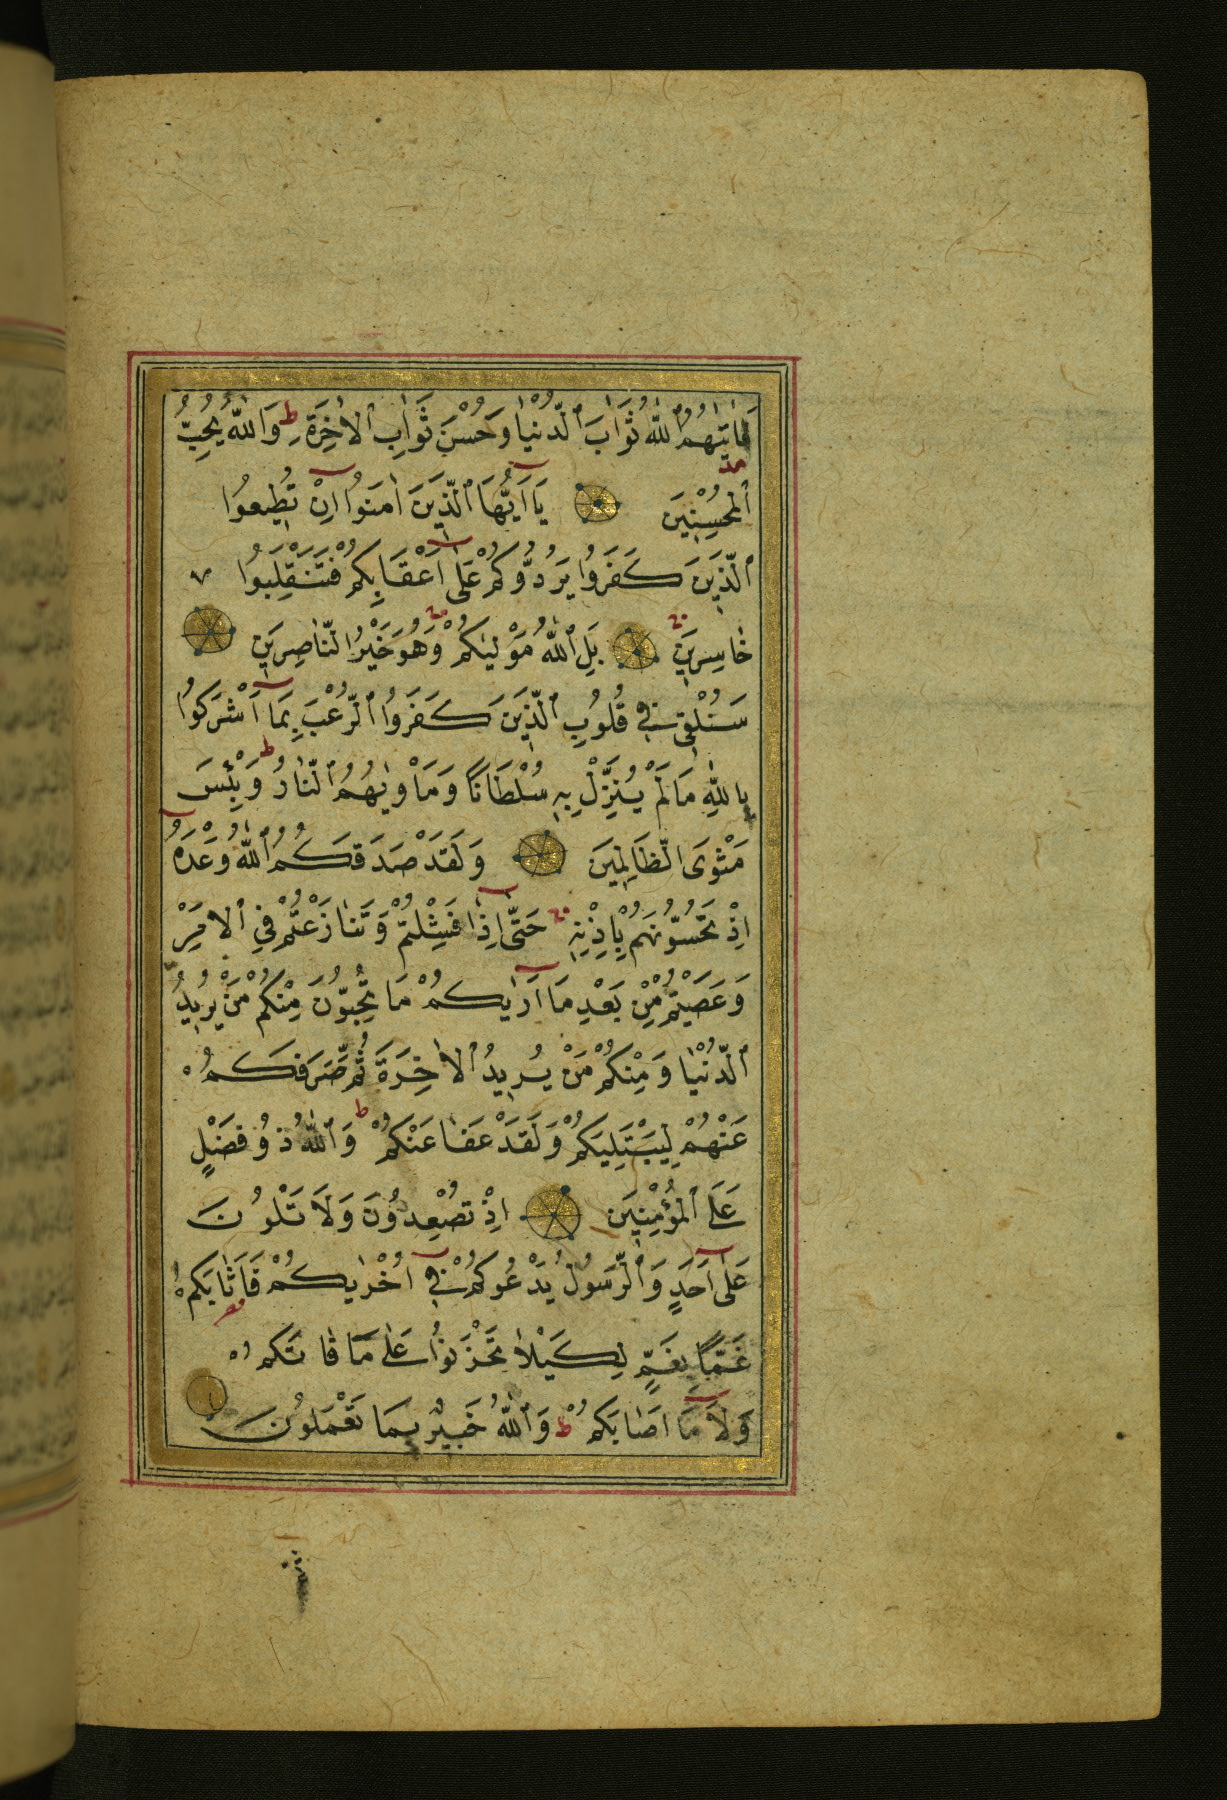 فَاٰتٰيهُمُ ٱللّٰهُ ثَوَابَ ٱلدُّنْيَا وَحُسْنَ ثَوَابِ ٱلاٰخِرَةِ ط وَٱللّٰهُ يُحِبُّ
ٱلْمُحْسِنِينَ يَآاَيُّهَا ٱلَّذِينَ اٰمَنُوٓا اِنْ تُطِيعُوا
ٱلَّذِينَ كَفَرُوا يَرُدُّوكُمْ عَلٰٓى اَعْقَابِكُمْ فَتَنْقَلِبُوا
خَاسِرِينَ بَلِ ٱللّٰهُ مَوْلٰيكُمْ وَهُوَ خَيْرُ النَّاصِرِينَ
سَنُلْقِى فِى قُلُوبِ ٱلَّذِينَ كَفَرُوا ٱلرُّعْبَ بِمَآ اَشْرَكُوا
بِاللّٰهِ مَا لَمْ يُنَزِّلْ بِهٖ سُلْطَانًا وَمَاْوٰيهُمُ ٱلنَّارُ ط وَبِئْسَ
مَثْوَى الظَّالِمِينَ وَلَقَدْ صَدَقَكُمُ ٱللّٰهُ وَعْدَهُٓ
اِذْ تَحُسُّونَهُمْ بِاِذْنِهٖ حَتّٰٓى اِذَا فَشِلْتُمْ وَتَنَازَعْتُمْ فِي ٱلاَمْرِ
وَعَصَيْتُمْ مِنْ بَعْدِ مَآ اَرٰيكُمْ مَا تُحِبُّونَ مِنْكُمْ مَنْ يُرِيدُ
ٱلدُّنْيَا وَمِنْكُمْ مَنْ يُرِيدُ ٱلاٰخِرَةَ ثُمَّ صَرَفَكُمْ
عَنْهُمْ لِيَبْتَلِيَكُمْ وَلَقَدْ عَفَا عَنْكُمْ ط وَٱللّٰهُ ذُو فَضْلٍ
عَلَى ٱلْمُؤْمِنِينَ اِذْ تُصْعِدُونَ وَلَا تَلْوُنَ
عَلٰٓى اَحَدٍ وَٱلرَّسُولُ يَدْعُوكُمْ فِىٓ اُخْرٰيكُمْ فَاَثَابَكُمْ
غَمًّا بِغَمٍّ لِكَيْلَا تَحْزَنُوا عَلٰى مَا فَاتَكُمْ
وَلَا مَآ اَصَابَكُمْ ط وَٱللّٰهُ خَبِيرٌ بِمَا تَعْمَلُونَ